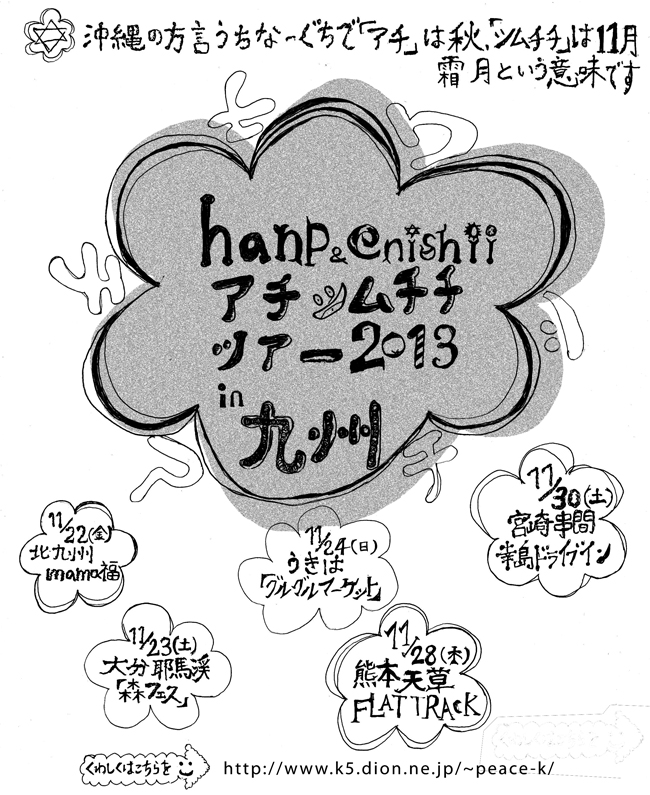 沖縄の方言うちなーぐちで「アチ」は秋、「シムチチ」は11月
霜月という意味です
hanp&enishii
アチシムチチ
ツアー2013
in
九州
11/22(金)
北九州
mamo福
11/23(土)
大分耶馬溪
「森フェス」
11/24(日)
うきは
「グルグルマーケット」
11/28(木)
熊本天草
FLATTRACK
11/30(土)
宮崎串間
幸島ドライブイン
くわしくはこちらを
http://www.k5.dion.ne.jp/~peace-k/